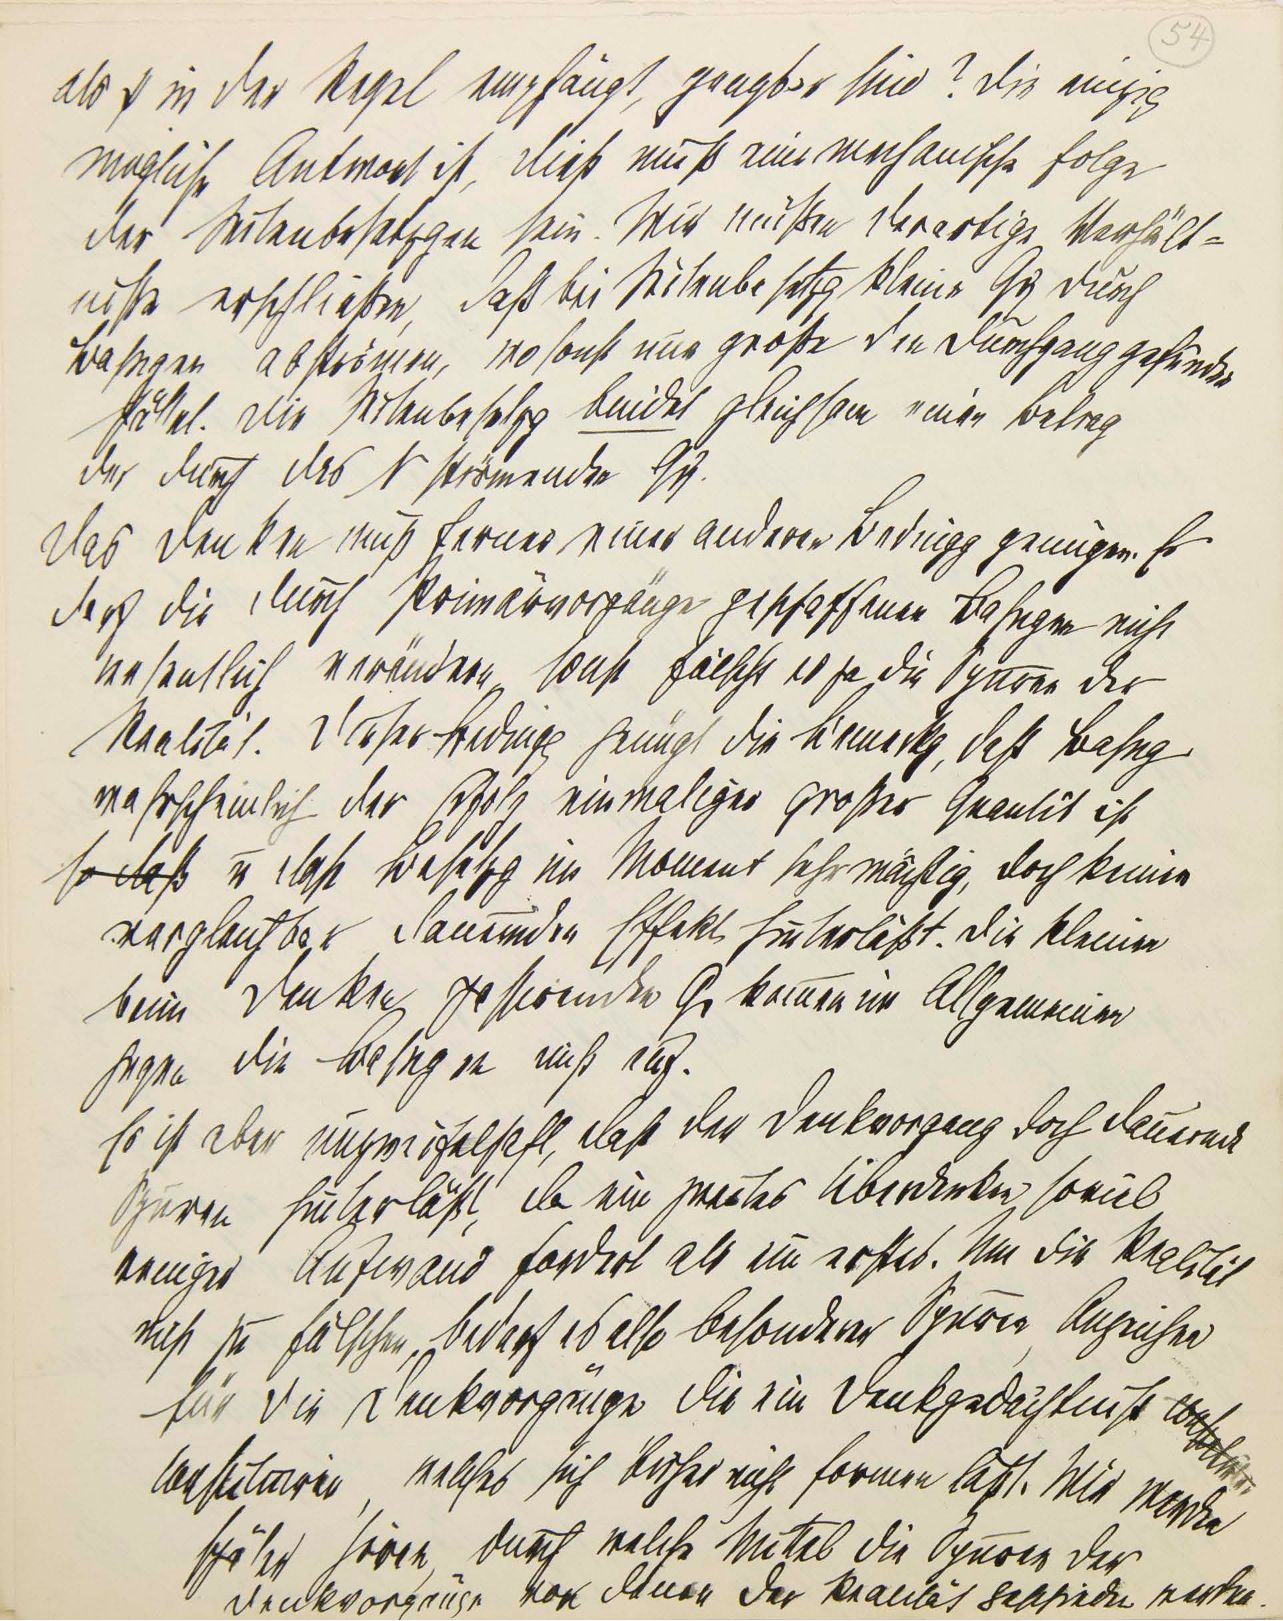 54
als ψ in der Regel empfängt, gangbar sind? Die einzig
mögliche Antwort ist, dieß muß eine mechanische Folge
der Seitenbesetzgen sein. Wir müßen derartige Verhält-
niße erschließen, daß bei Seitenbesetzg kleine Qη durch
Bahngen abströmen, wo sonst nur große den Durchgang gefunden
hätten. Die Seitenbesetzg bindet gleichsam einen Betrag
der durch das N strömenden Qη.
Das Denken muß ferner einer anderen Bedingg genügen. Es
darf die durch Primärvorgänge geschaffenen Bahngen nicht
wesentlich verändern, sonst fälscht es ja die Spuren der
Realität. Dieser Bedingg genügt die Bemerkg, daß Bahng
wahrscheinlich der Erfolg einmaliger großer Quantit ist
so daß u daß Besetzg im Moment sehr mächtig, doch keinen
vergleichbar dauernden Effekt hinterläßt. Die kleinen
beim Denken passirenden Q kommen im Allgemeinen
gegen die Bahngen nicht auf.
Es ist aber unzweifelhaft, daß der Denkvorgang doch dauernde
Spuren hinterläßt, da ein zweites Überdenken soviel
weniger Aufwand fordert als ein erstes. Um die Realität
nicht zu fälschen, bedarf es also besonderer Spuren, Anzeichen
für die Denkvorgänge die ein Denkgedächtniß
constituiren, welches sich bisher nicht formen läßt. Wir werden
später hören, durch welche Mittel die Spuren der
Denkvorgänge von denen der Realität geschieden werden.